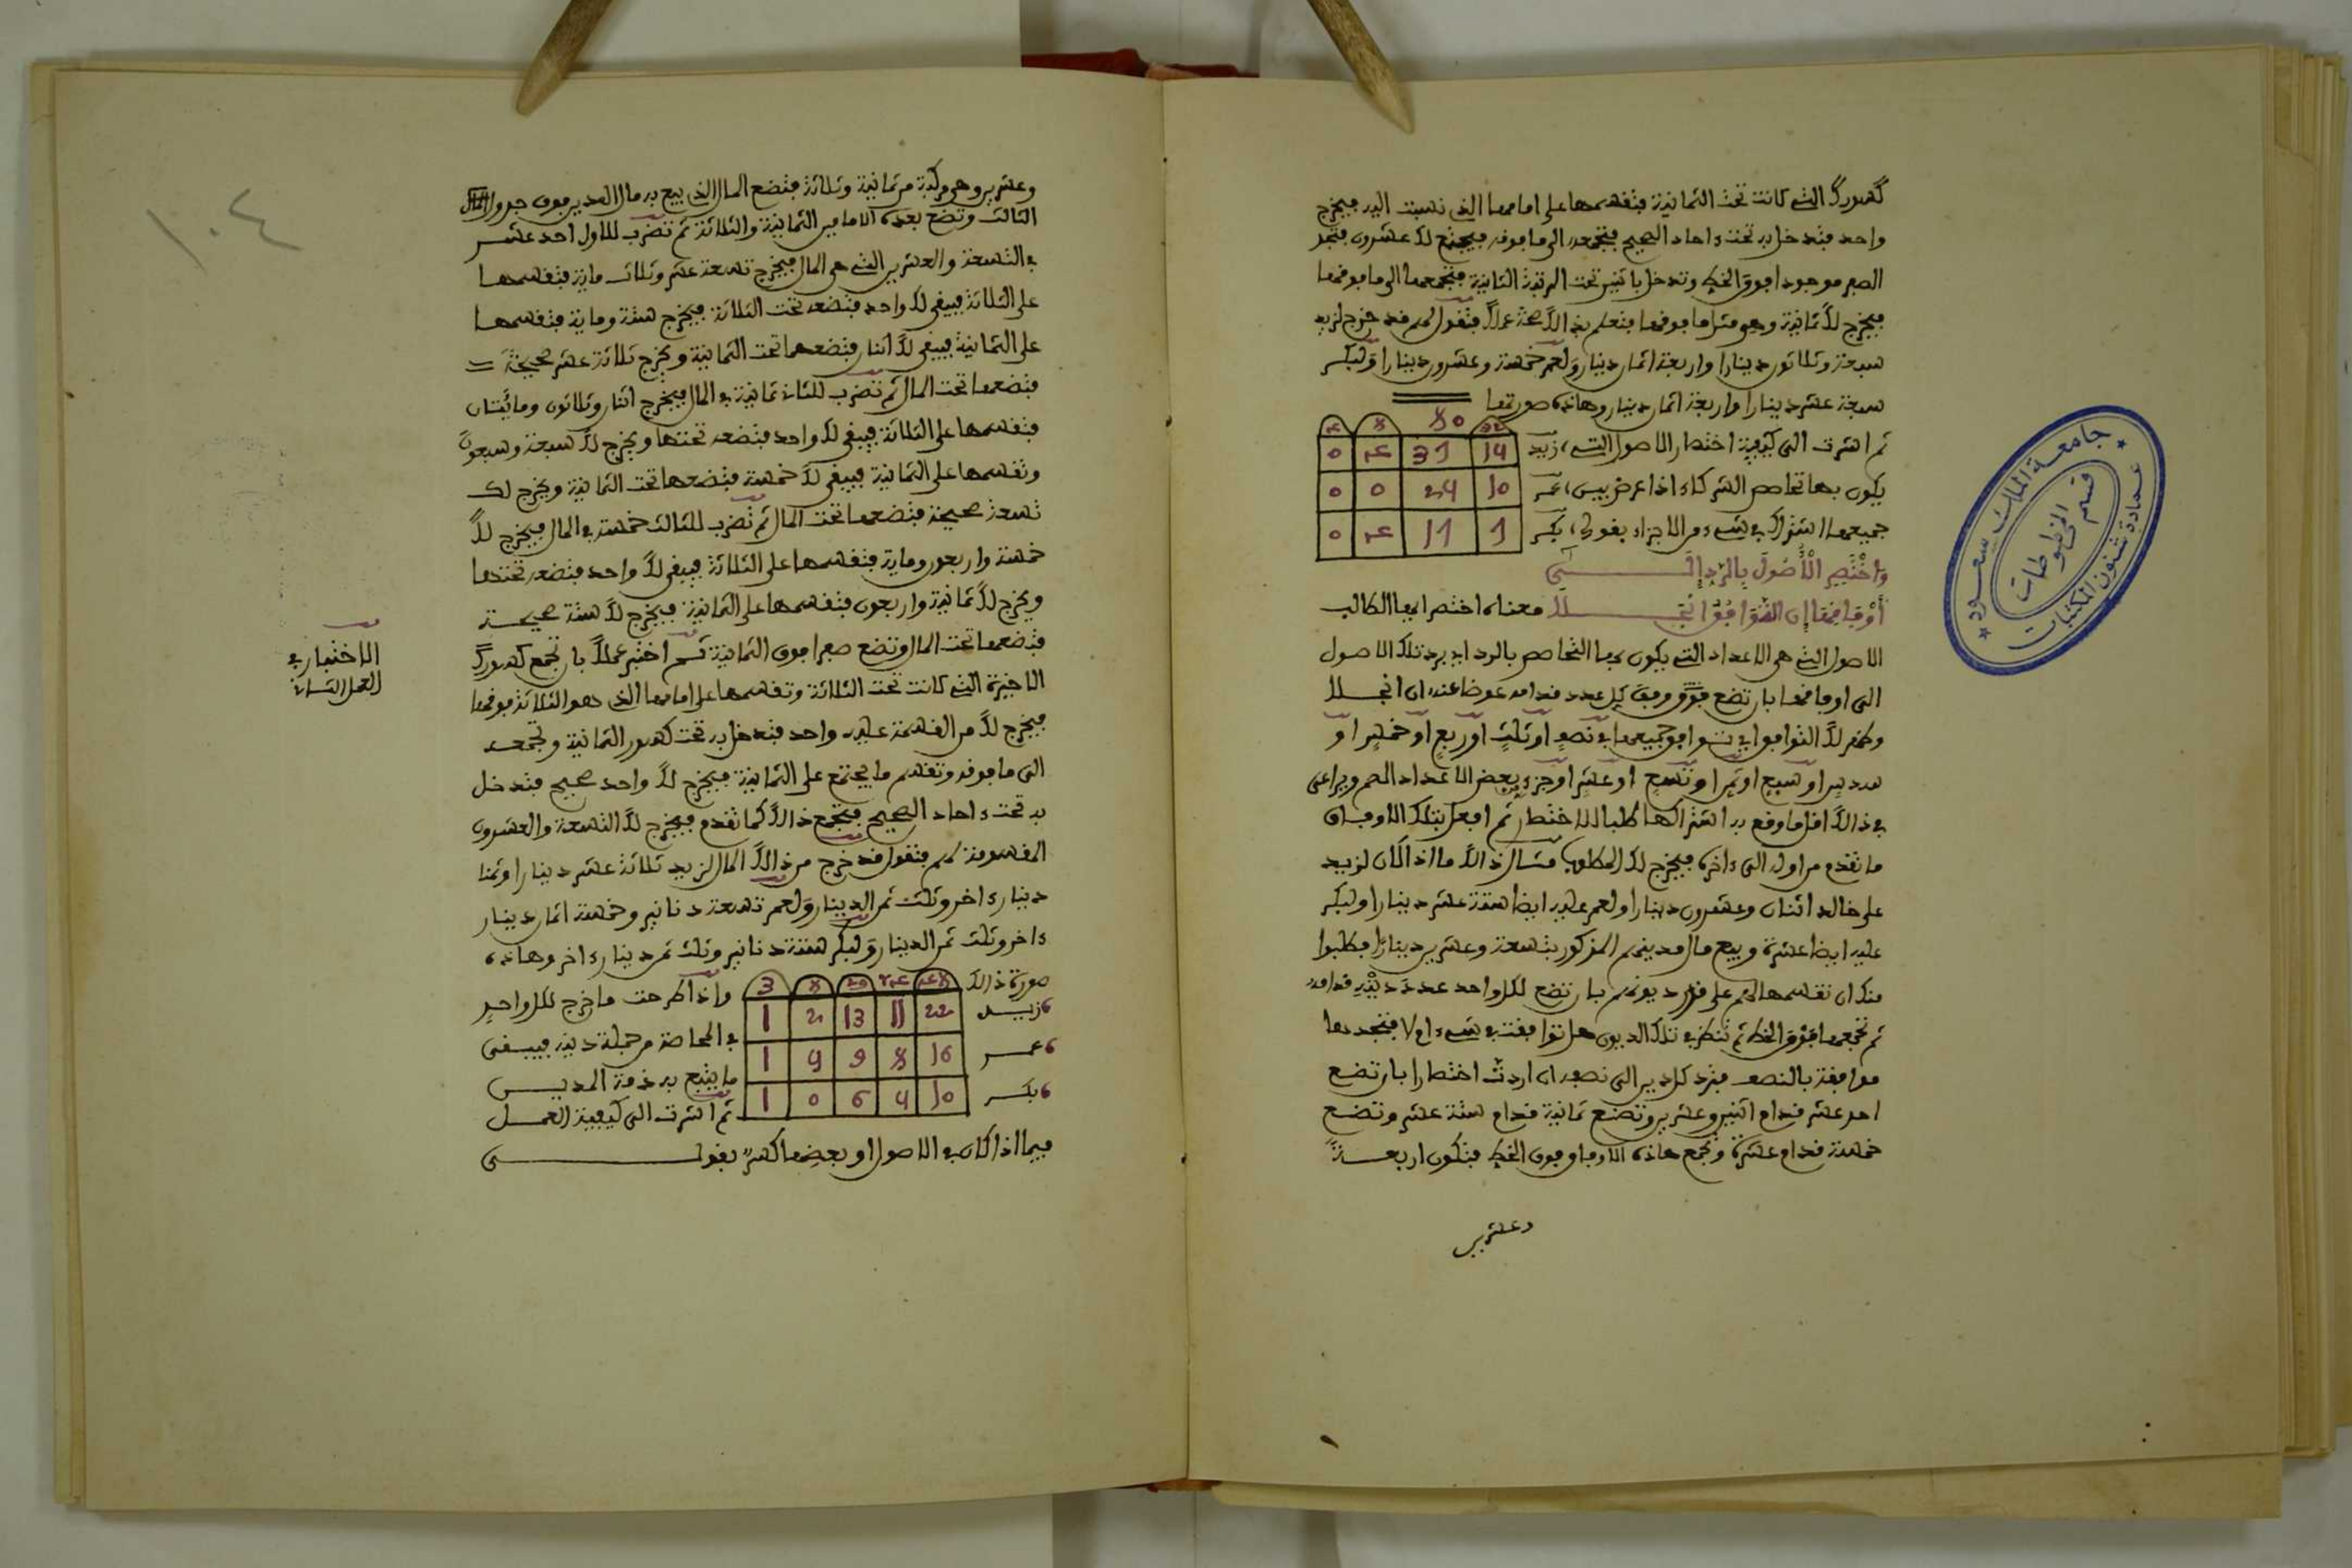 كسورك التي كانت تحت الثمانية فتقسمها على امامها الذي نسبت اليه فيخرج
واحد فتدخل به تحت ءاحاد الصحيح فتجمعه الى ما فوقه فيجتمع لك عشرون فتجد
الصفر موجودا فوق الخط وتدخل باثنين تحت المرتبة الثانية فتجمعهما الى ما فوقهما
فيخرج لك ثمانية وهو مثل ما فوقها فتعلم بذالك صحة عملك فتقول لهم قد خرج لزيد
سبعة وثلاثون دينارا واربعة اثمان دينار ولعمر خمسة وعشرون دينارا ولبكر
سبعة عشر دينارا واربعة اثمان دينار وهاذه صورتها
ثم اشرت الى كيفية اختصار الاصول التي
يكون بها تحاصص الشركاء اذا عرض بين
جميعها اشتراك في شيء من الاجزاء بقولي
زيد 14 31 4 0
عمر 10 24 0 0
بكر 1 11 4 0
80
واختصر الأصول بالرد إلى
أوفاقها إن التوافق انجلا معناه اختصر ايها الطالب
الاصول التي هي الاعداد التي يكون بها التحاصص بالرد اي برد تلك الاصول
الى اوفاقها بان تضع وفق كل عدد قدامه عوضا عنه ان انجلا
وظهر لك التوافق اي توافق جميعها في نصف او ثلث او ربع او خمس او
سدس او سبع او ثمن او تسع او عشر او جزء بعض الاعداد الصم ويراعى
في ذالك اقل ما وقع به اشتراكها طلبا للاختصار ثم افعل بتلك الاوفاق
ما تقدم من اوله الى ءاخره فيخرج لك المطلوب مثال ذالك ما اذا كان لزيد
على خالد اثنان وعشرون دينارا ولعمر عليه ايضا ستة عشر دينارا ولبكر
عليه ايضا عشرة وبيع مال مدينهم المذكور بتسعة وعشرين دينارا فطلبوا
منك ان تقسمها لهم على قدر ديونهم بان تضع لكل واحد عدد دينه قدامه
ثم تجمعها فوق الخط ثم تنظر في تلك الديون هل توافقت في شيء ام لا فتجدها
موافقة بالنصف فترد كل دين الى نصفه ان اردت اختصارا بان تضع
احد عشر قدام اثنين وعشرين وتضع ثمانية قدام ستة عشر وتضع
خمسة قدام عشرة وتجمع هاذه الاوفاق فوق الخط فتكون اربعة
وعشرين
جامعة الملك سعود
قسم المخطوطات
عمادة شئون المكتبات
١٠٤
وعشرين وهي مركبة من ثمانية وثلاثة فتضع المال الذي بيع به مال المدين فوق جدول
الثالث وتضع بعده الامامين الثمانية والثلاثة ثم تضرب للاول احد عشر
في التسعة والعشرين التي هي المال فيخرج تسعة عشر وثلاث ماية فتقسمها
على الثلاثة فيبقى لك واحد فتضعه تحت الثلاثة فيخرج ستة وماية فتقسمها
على الثمانية فيبقى لك اثنان فتضعهما تحت الثمانية ويخرج ثلاثة عشر صحيحة
فتضعها تحت المال ثم تضرب للثاني ثمانية في المال فيخرج اثنان وثلاثون ومائتان
فتقسمها على الثلاثة فيبقى لك واحد فتضعه تحتها ويخرج لك سبعة وسبعون
وتقسمها على الثمانية فيبقى لك خمسة فتضعها تحت الثمانية ويخرج لك
تسعة صحيحة فتضعها تحت المال ثم تضرب للثالث خمسة في المال فيخرج لك
خمسة واربعون وماية فتقسمها على الثلاثة فيبقى لك واحد فتضعه تحتها
ويخرج لك ثمانية واربعون فتقسمها على الثمانية فيخرج لك ستة صحيحة
فتضعها تحت المال وتضع صفرا فوق الثمانية ثم اختبر عملك بان تجمع كسورك
الاخيرة التي كانت تحت الثلاثة وتقسمها على امامها الذي هو الثلاثة فوقها
فيخرج لك من القسمة عليه واحد فتدخل به تحت كسور الثمانية وتجمعه
الى ما فوقه وتقسم ما يجتمع على الثمانية فيخرج لك واحد صحيح فتدخل
به تحت ءاحاد الصحيح فتجمع ذالك كما تقدم فيخرج لك التسعة والعشرون
المقسومة لهم فتقول قد خرج من ذالك المال لزيد ثلاثة عشر دينارا وثمنا
دينار ءاخر وثلث ثمن الدينار ولعمر تسعة دنانير وخمسة اثمان دينار
ءاخر وثلث ثمن الدينار ولبكر ستة دنانير وثلث ثمن دينار ءاخر وهاذه
صورة ذالك
زيد 22 11 13 2 1
عمر 16 8 9 5 1
بكر 10 5 6 0 1
واذا طرحت ما خرج لكل واحد
في المحاصة من جملة دينه فيبقى
ما يتبع به ذمة المدين
ثم اشرت الى كيفية العمل
فيما اذا كان في الاصول او بعضها كسر بقولي
الاختبار في
العمل الثاني